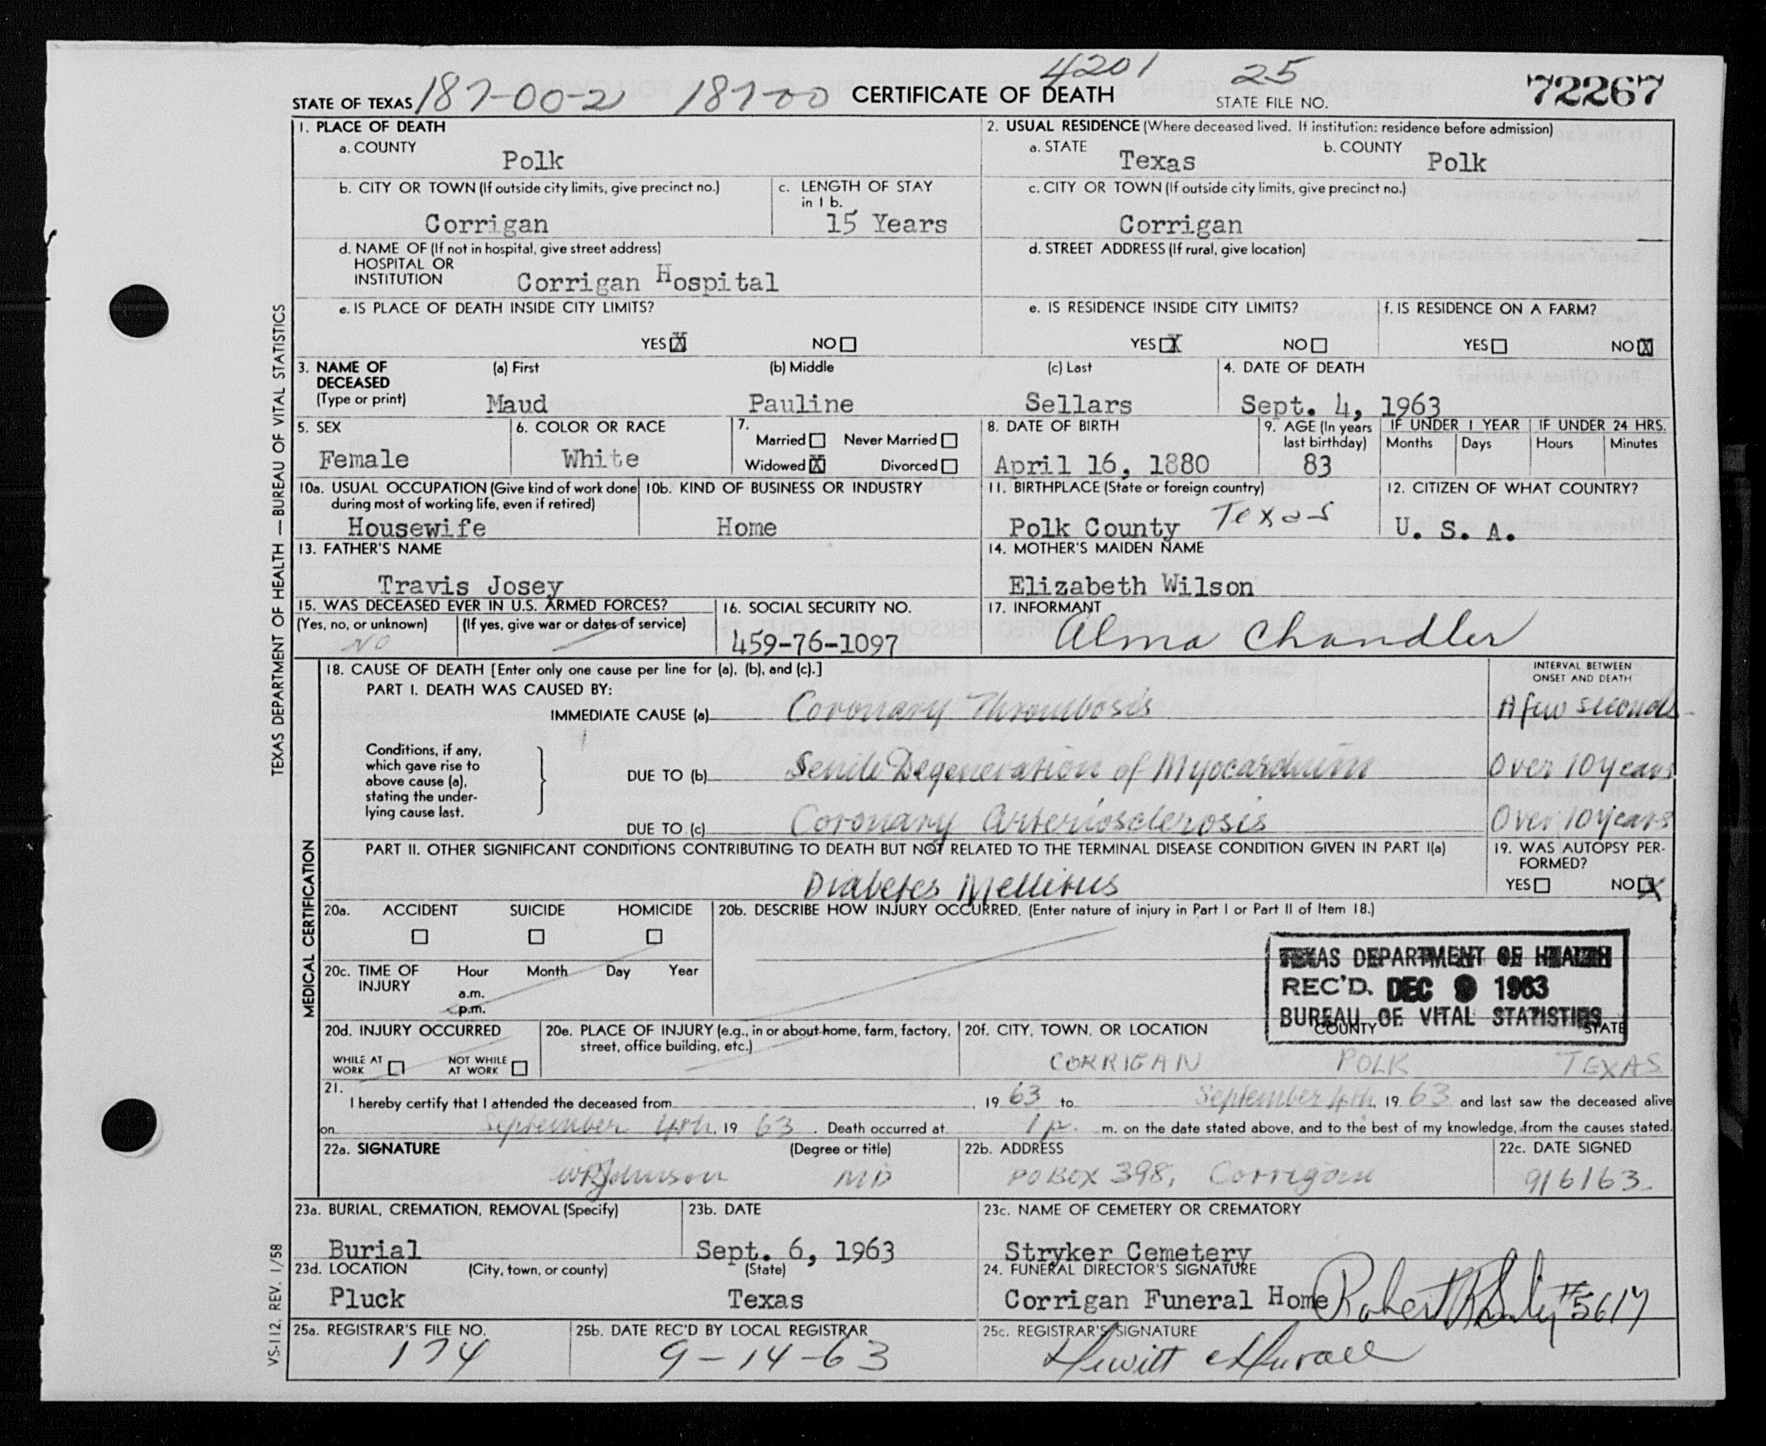 4201 25 72267
STATE OF TEXAS 187-00-2 187-00 CERTIFICATE OF DEATH STATE FILE NO.
1. PLACE OF DEATH
a. COUNTY
Polk
2. USUAL RESIDENCE (Where deceased lived. If institution: residence before admission)
a. STATE b. COUNTY
Texas Polk
b. CITY OR TOWN (If outside city limits, give precinct no.)
Corrigan
c. LENGTH OF STAY
in 1 b.
15 Years
c. CITY OR TOWN (If outside city limits, give precinct no.)
Corrigan
d. NAME OF (If not in hospital, give street address)
HOSPITAL OR
INSTITUTION Corrigan Hospital
d. STREET ADDRESS (If rural, give location)
e. IS PLACE OF DEATH INSIDE CITY LIMITS?
YES X NO
e. IS RESIDENCE INSIDE CITY LIMITS?
YES X NO
f. IS RESIDENCE ON A FARM?
YES NO X
3. NAME OF
DECEASED
(Type or print)
(a) First (b) Middle (c) Last
Maud Pauline Sellars
4. DATE OF DEATH
Sept. 4, 1963
5. SEX
Female
6. COLOR OR RACE
White
7.
Married Never Married
Widowed X Divorced
8. DATE OF BIRTH
April 16, 1880
9. AGE (In years
last birthday)
83
IF UNDER 1 YEAR
Months Days
IF UNDER 24 HRS.
Hours Minutes
10a. USUAL OCCUPATION (Give kind of work done
during most of working life, even if retired)
Housewife
10b. KIND OF BUSINESS OR INDUSTRY
Home
11. BIRTHPLACE (State or foreign country)
Polk County Texas
12. CITIZEN OF WHAT COUNTRY?
U. S. A.
13. FATHER'S NAME
Travis Josey
14. MOTHER'S MAIDEN NAME
Elizabeth Wilson
15. WAS DECEASED EVER IN U.S. ARMED FORCES?
(Yes, no, or unknown) (If yes, give war or dates of service)
NO
16. SOCIAL SECURITY NO.
459-76-1097
17. INFORMANT
Alma Chandler
18. CAUSE OF DEATH [Enter only one cause per line for (a), (b), and (c).]
PART I. DEATH WAS CAUSED BY:
INTERVAL BETWEEN
ONSET AND DEATH
IMMEDIATE CAUSE (a) Coronary Thrombosis A few seconds
Conditions, if any,
which gave rise to
above cause (a),
stating the under-
lying cause last.
DUE TO (b) Senile Degeneration of Myocardium Over 10 years
DUE TO (c) Coronary Arteriosclerosis Over 10 years
PART II. OTHER SIGNIFICANT CONDITIONS CONTRIBUTING TO DEATH BUT NOT RELATED TO THE TERMINAL DISEASE CONDITION GIVEN IN PART I(a)
Diabetes Mellitus
19. WAS AUTOPSY PER-
FORMED?
YES NO X
20a. ACCIDENT SUICIDE HOMICIDE
20b. DESCRIBE HOW INJURY OCCURRED. (Enter nature of injury in Part I or Part II of Item 18.)
20c. TIME OF
INJURY
Hour Month Day Year
a.m.
p.m.
TEXAS DEPARTMENT OF HEALTH
REC'D. DEC 9 1963
BUREAU OF VITAL STATISTICS
20d. INJURY OCCURRED
WHILE AT
WORK
NOT WHILE
AT WORK
20e. PLACE OF INJURY (e.g., in or about home, farm, factory,
street, office building, etc.)
20f. CITY, TOWN, OR LOCATION COUNTY STATE
CORRIGAN POLK TEXAS
21.
I hereby certify that I attended the deceased from , 19 63 to September 4th, 19 63 and last saw the deceased alive
on September 4th, 19 63. Death occurred at 1 p. m. on the date stated above, and to the best of my knowledge, from the causes stated.
22a. SIGNATURE (Degree or title)
WR Johnson MD
22b. ADDRESS
PO BOX 398, Corrigan
22c. DATE SIGNED
9/6/63
23a. BURIAL, CREMATION, REMOVAL (Specify)
Burial
23b. DATE
Sept. 6, 1963
23c. NAME OF CEMETERY OR CREMATORY
Stryker Cemetery
23d. LOCATION (City, town, or county) (State)
Pluck Texas
24. FUNERAL DIRECTOR'S SIGNATURE
Corrigan Funeral Home Robert #5617
25a. REGISTRAR'S FILE NO.
174
25b. DATE REC'D BY LOCAL REGISTRAR
9-14-63
25c. REGISTRAR'S SIGNATURE
Hewitt
TEXAS DEPARTMENT OF HEALTH — BUREAU OF VITAL STATISTICS
MEDICAL CERTIFICATION
VS-112, REV. 1/58